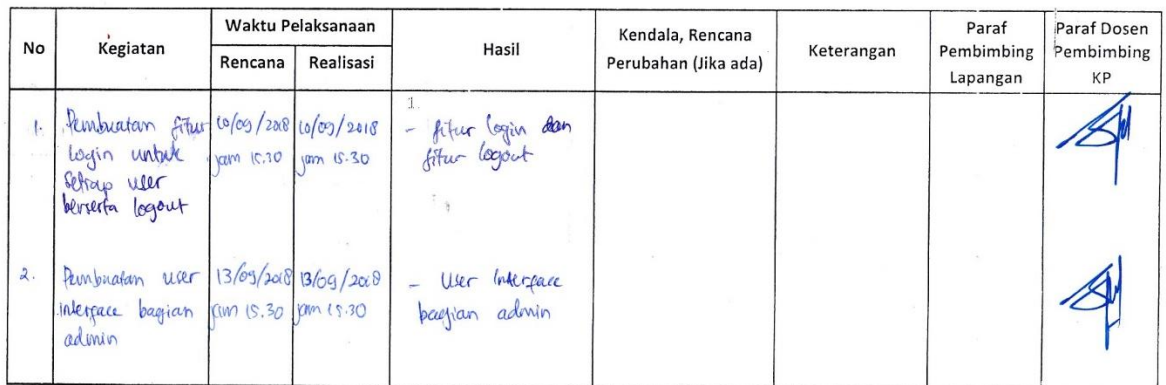 No
Kegiatan
Waktu Pelaksanaan
Rencana
Realisasi
Hasil
Kendala, Rencana
Perubahan (Jika ada)
Keterangan
Paraf
Pembimbing
Lapangan
Paraf Dosen
Pembimbing
KP
1.
Pembuatan fitur
login untuk
setiap user
berserta logout
10/09/2018
jam 15.30
10/09/2018
jam 15.30
1.
- fitur login dan
fitur logout
2.
Pembuatan user
interface bagian
admin
13/09/2018
jam 15.30
13/09/2018
jam 15.30
- User Interface
bagian admin